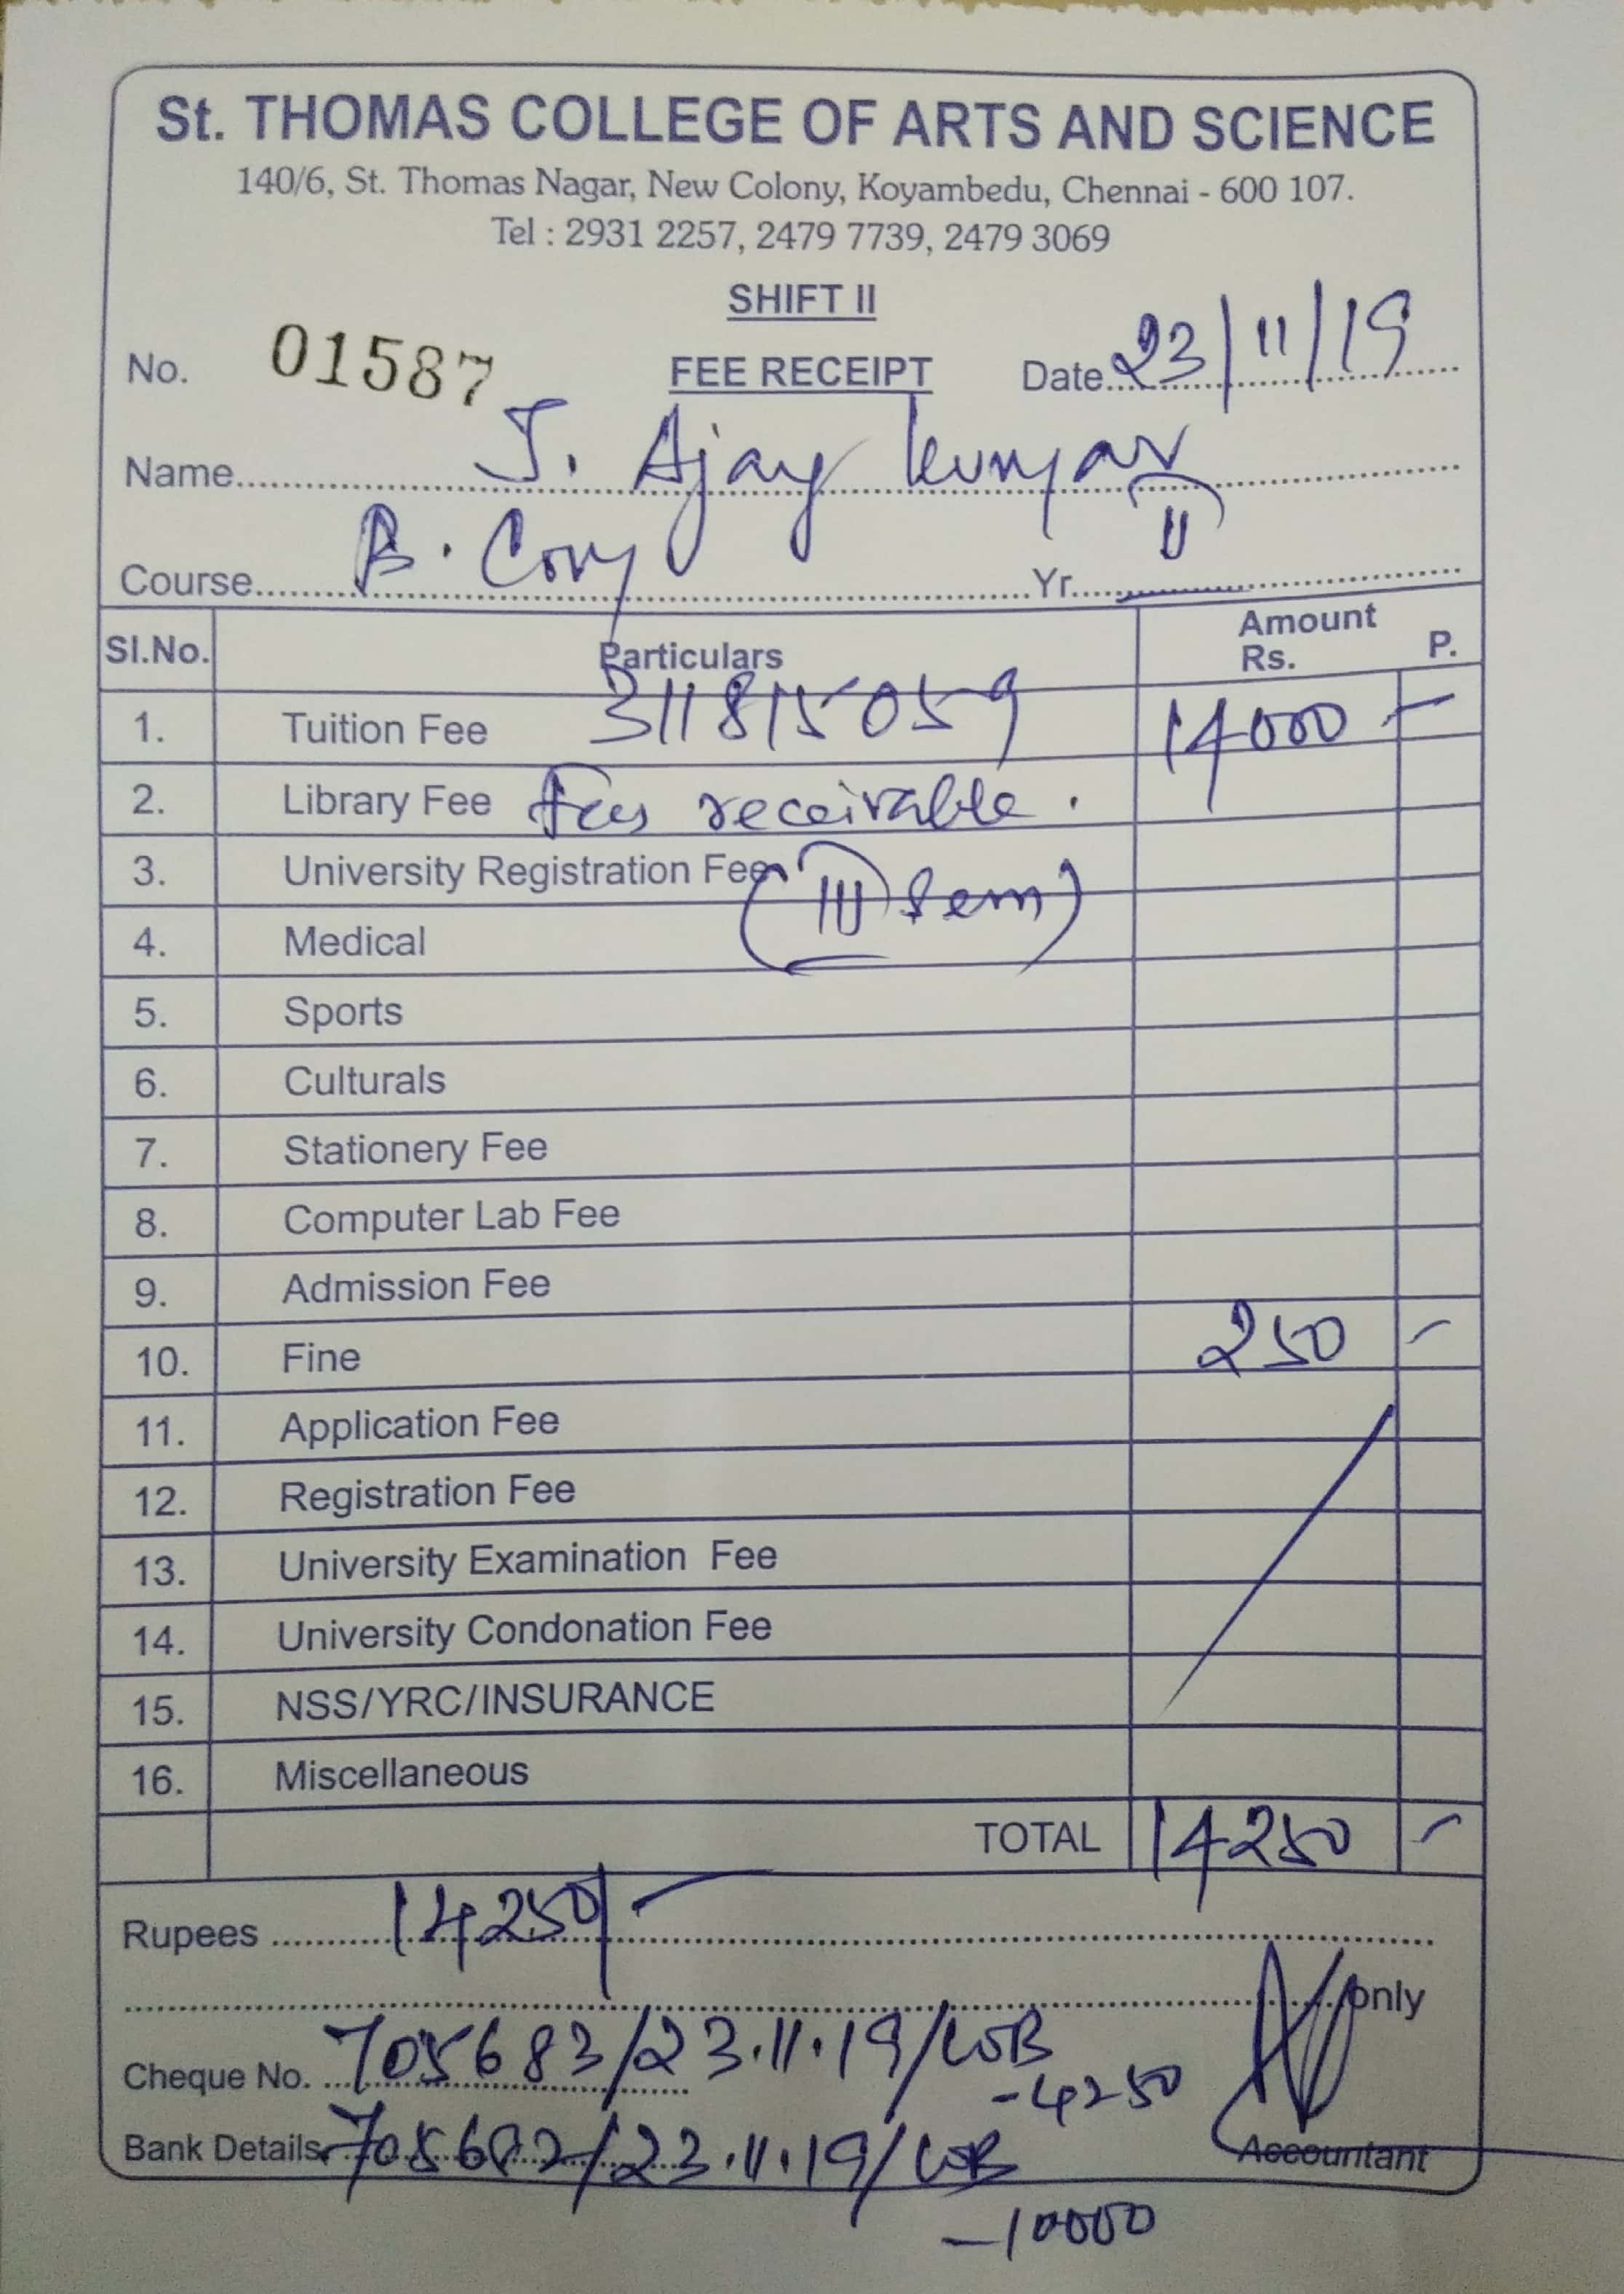 St. THOMAS COLLEGE OF ARTS AND SCIENCE
140/6, St. Thomas Nagar, New Colony, Koyambedu, Chennai - 600 107.
Tel : 2931 2257, 2479 7739, 2479 3069
SHIFT II
No. 01587 FEE RECEIPT Date 23/11/19
Name J. Ajay kumar
Course B. Com Yr. II
Sl.No. Particulars Amount Rs. P.
1. Tuition Fee 311815059 14000 -
2. Library Fee Fees receivable.
3. University Registration Fee (III Sem)
4. Medical
5. Sports
6. Culturals
7. Stationery Fee
8. Computer Lab Fee
9. Admission Fee
10. Fine 250 -
11. Application Fee
12. Registration Fee
13. University Examination Fee
14. University Condonation Fee
15. NSS/YRC/INSURANCE
16. Miscellaneous
TOTAL 14250 -
Rupees 14250/-
only
Cheque No. 705683/23.11.19/
-4250
Bank Details 705682/23.11.19/
Accountant
-10000